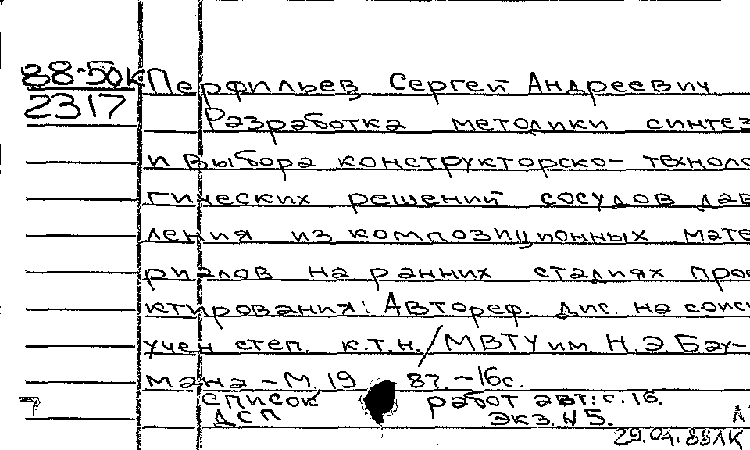 88-50К Перфильев Сергей Андреевич
2317 Разработка методики синтез
и выбора конструкторско- техноло
гических решений сосудов дав
ления из композиционных мате
риалов на ранних стадиях прое
ктирования: Автореф. дис. на соиск
учен степ. к.т.н. / МВТУ им Н.Э. Бау-
мана - М. 19 87. - 16с.
список работ авт: с. 16.
ДСП экз. N 5.
29.04.88ЛК